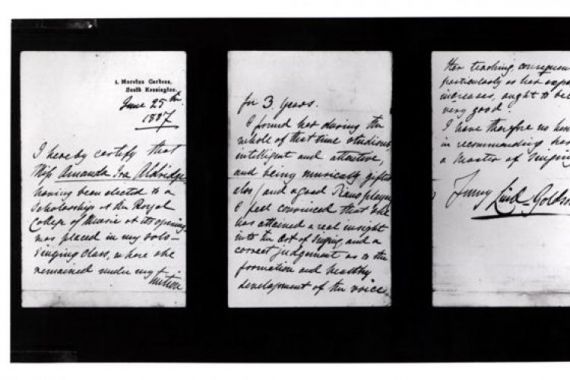 1, Moreton Gardens,
South Kensington.
June 25th
1887
I hereby certify that
Miss Amanda Ira Aldridge
having been elected to a
Scholarship at the Royal
College of Music at its opening
was placed in my solo-
singing class, where she
remained under my
tuition
for 3 years.
I found her during the
whole of that time studious
intelligent and attentive,
and being musically gifted
also / and a good Piano player
I feel convinced that she
has attained a real insight
into the Art of Singing, and a
correct judgement as to the
formation and healthy
development of the voice
Her teaching, consequen
particularly as her expe
increases, ought to be
very good.
I have therefore no
in recommending her
a Master of Singing
Jenny Lind-Goldsc